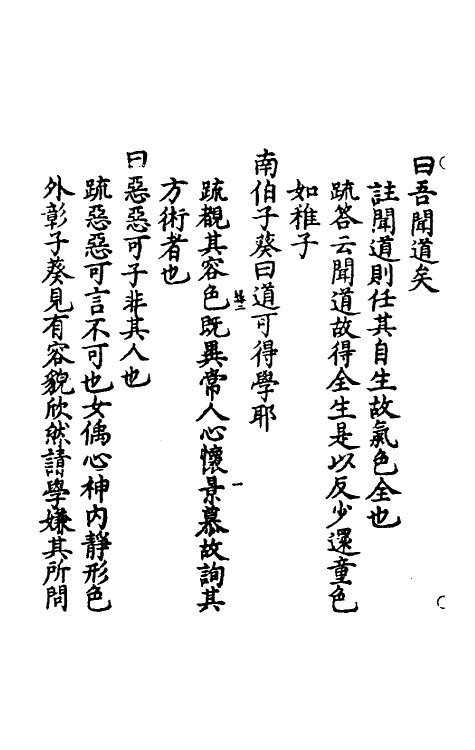 曰吾聞道矣
註聞道則任其自生故氣色全也
疏答云聞道故得全生是以反少還童色
如稚子
南伯子葵曰道可得學耶
疏觀其容色既異常人心懷景慕故詢其
方術者也
曰惡惡可子非其人也
疏惡惡可言不可也女偊心神内靜形色
外彰子葵見有容貌欣然請學嫌其所問